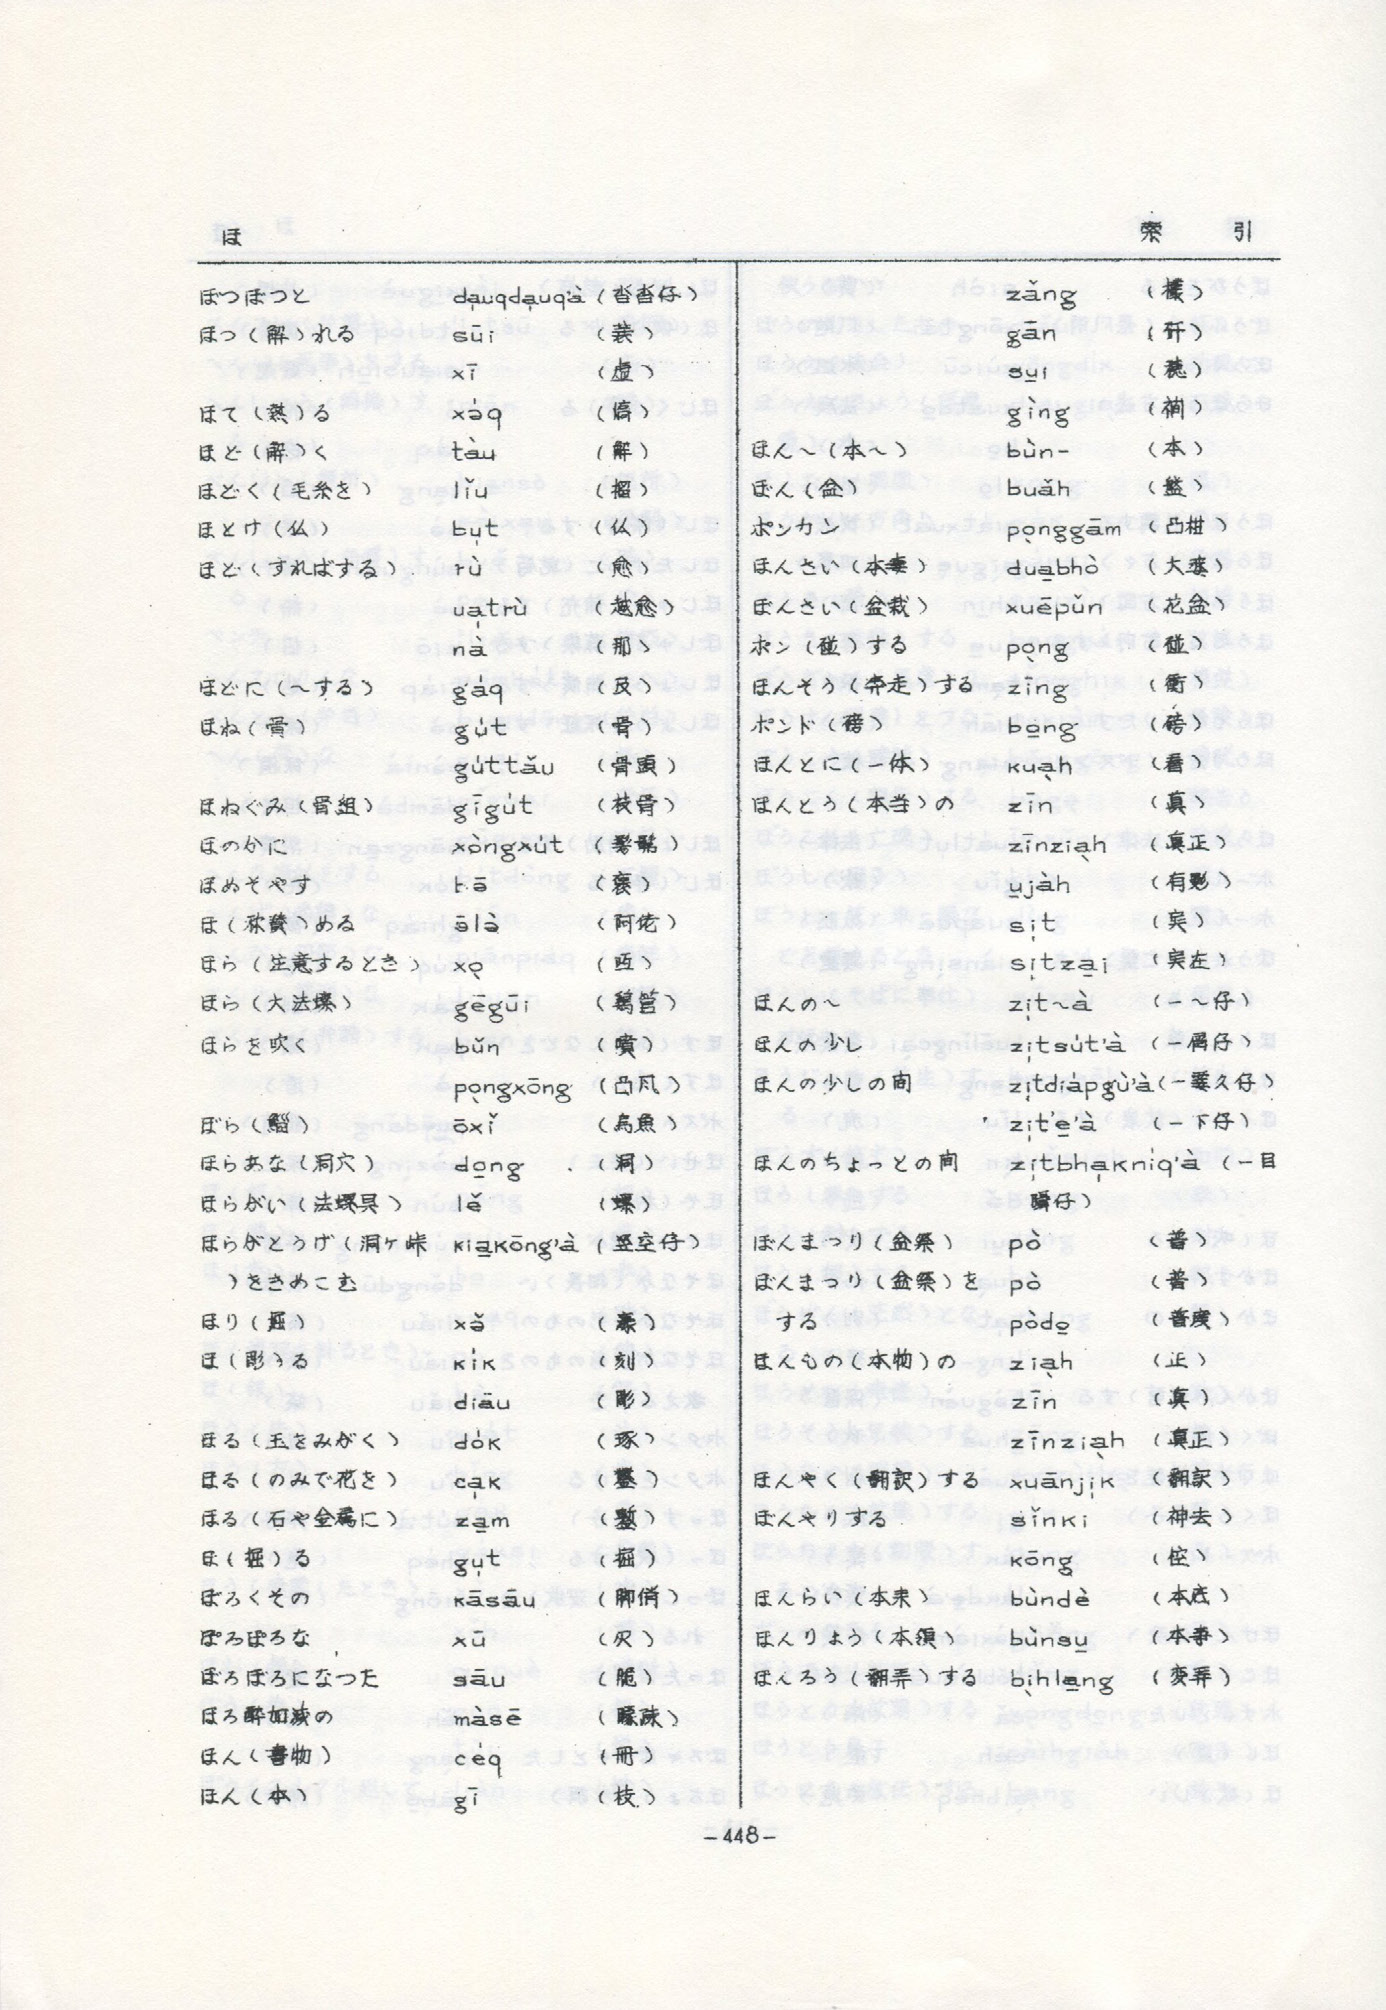 ほ
索 引
ぼつぼつと dа̣uqdа̣uq'à (沓沓仔)
ほつ(解)れる sūi (裟)
xī (虚)
ほて(熱)る xəq (熇)
ほど(解)く tàu (解)
ほどく(毛糸を) lǐu (摺)
ほとけ(仏) bụt (仏)
ほど(すればする) rù (愈)
uạtrù (越愈)
nà (那)
ほどに(〜する) gàq (及)
ほね(骨) gút (骨)
gúttǎu (骨頭)
ほねぐみ(骨組) gīgút (枝骨)
ほのかに xóngxút
ほめそやす (褒)
ほ(称讚)める ālə (阿佬)
ほら(注意するとき)
ほら(大法螺) gēgūi (鶏管)
ほらを吹く bǔn (噴)
pọngxōng (凸風)
ぼら(鯔) ōxǐ (烏魚)
ほらあな(洞穴) do̱ng (洞)
ほらがい(法螺貝) lě (螺)
ほらがとうげ(洞ケ峠 kia̱kōng'à (竪空仔)
)をきめこむ
ほり(堀) xə̌ (濠)
ほ(彫)る kík (刻)
diāu (彫)
ほる(玉をみがく) dók (琢)
ほる(のみで花を) cạk (鑿)
ほる(石や金属に) za̱m (鏨)
ほ(掘)る gụt (掘)
ぼろくその kāsāu (脚俏)
ぼろぼろな xū
ぼろぼろになった sāu (脆)
ほろ酔加減の màsē
ほん(書物) céq (冊)
ほん(本) gī (枝)
zǎng (欉)
gān (矸)
su̱i (穂)
gìng
ほん〜(本〜) bùn- (本)
ぼん(盆) buáh (盤)
ポンカン pọnggām (凸柑)
ほんさい(本妻) dua̱bhò (大婆)
ぼんさい(盆栽) xuēpǔn (花盆)
ポン(碰)する pọng (碰)
ほんそう(奔走)する zǐng (衝)
ポンド(磅) bo̱ng (磅)
ほんとに(一体) kuạh (看)
ほんとう(本当)の zīn (真)
zīnziạh (真正)
u̱jàh (有影)
sịt (実)
sịtza̱i (実在)
ほんの〜 zịt〜à (一〜仔)
ほんの少し zịtsút'à (一屑仔)
ほんの少しの間 zịtdiápgù'à (一霎久仔)
zịt'e̱'à (一下仔)
ほんのちょっとの間 zịtbhạkníq'à (一目
瞬仔)
ぼんまつり(盆祭) pò (普)
ぼんまつり(盆祭)を pò (普)
する pòdo̱ (普度)
ほんもの(本物)の ziạh (正)
zīn (真)
zīnziạh (真正)
ほんやく(翻訳)する xuānjịk (翻訳)
ぼんやりする sǐnki (神去)
kōng (倥)
ほんらい(本来) bùndè (本底)
ほんりょう(本領) bùnsu̱ (本事)
ほんろう(翻弄)する bịhla̱ng (変弄)
-448-